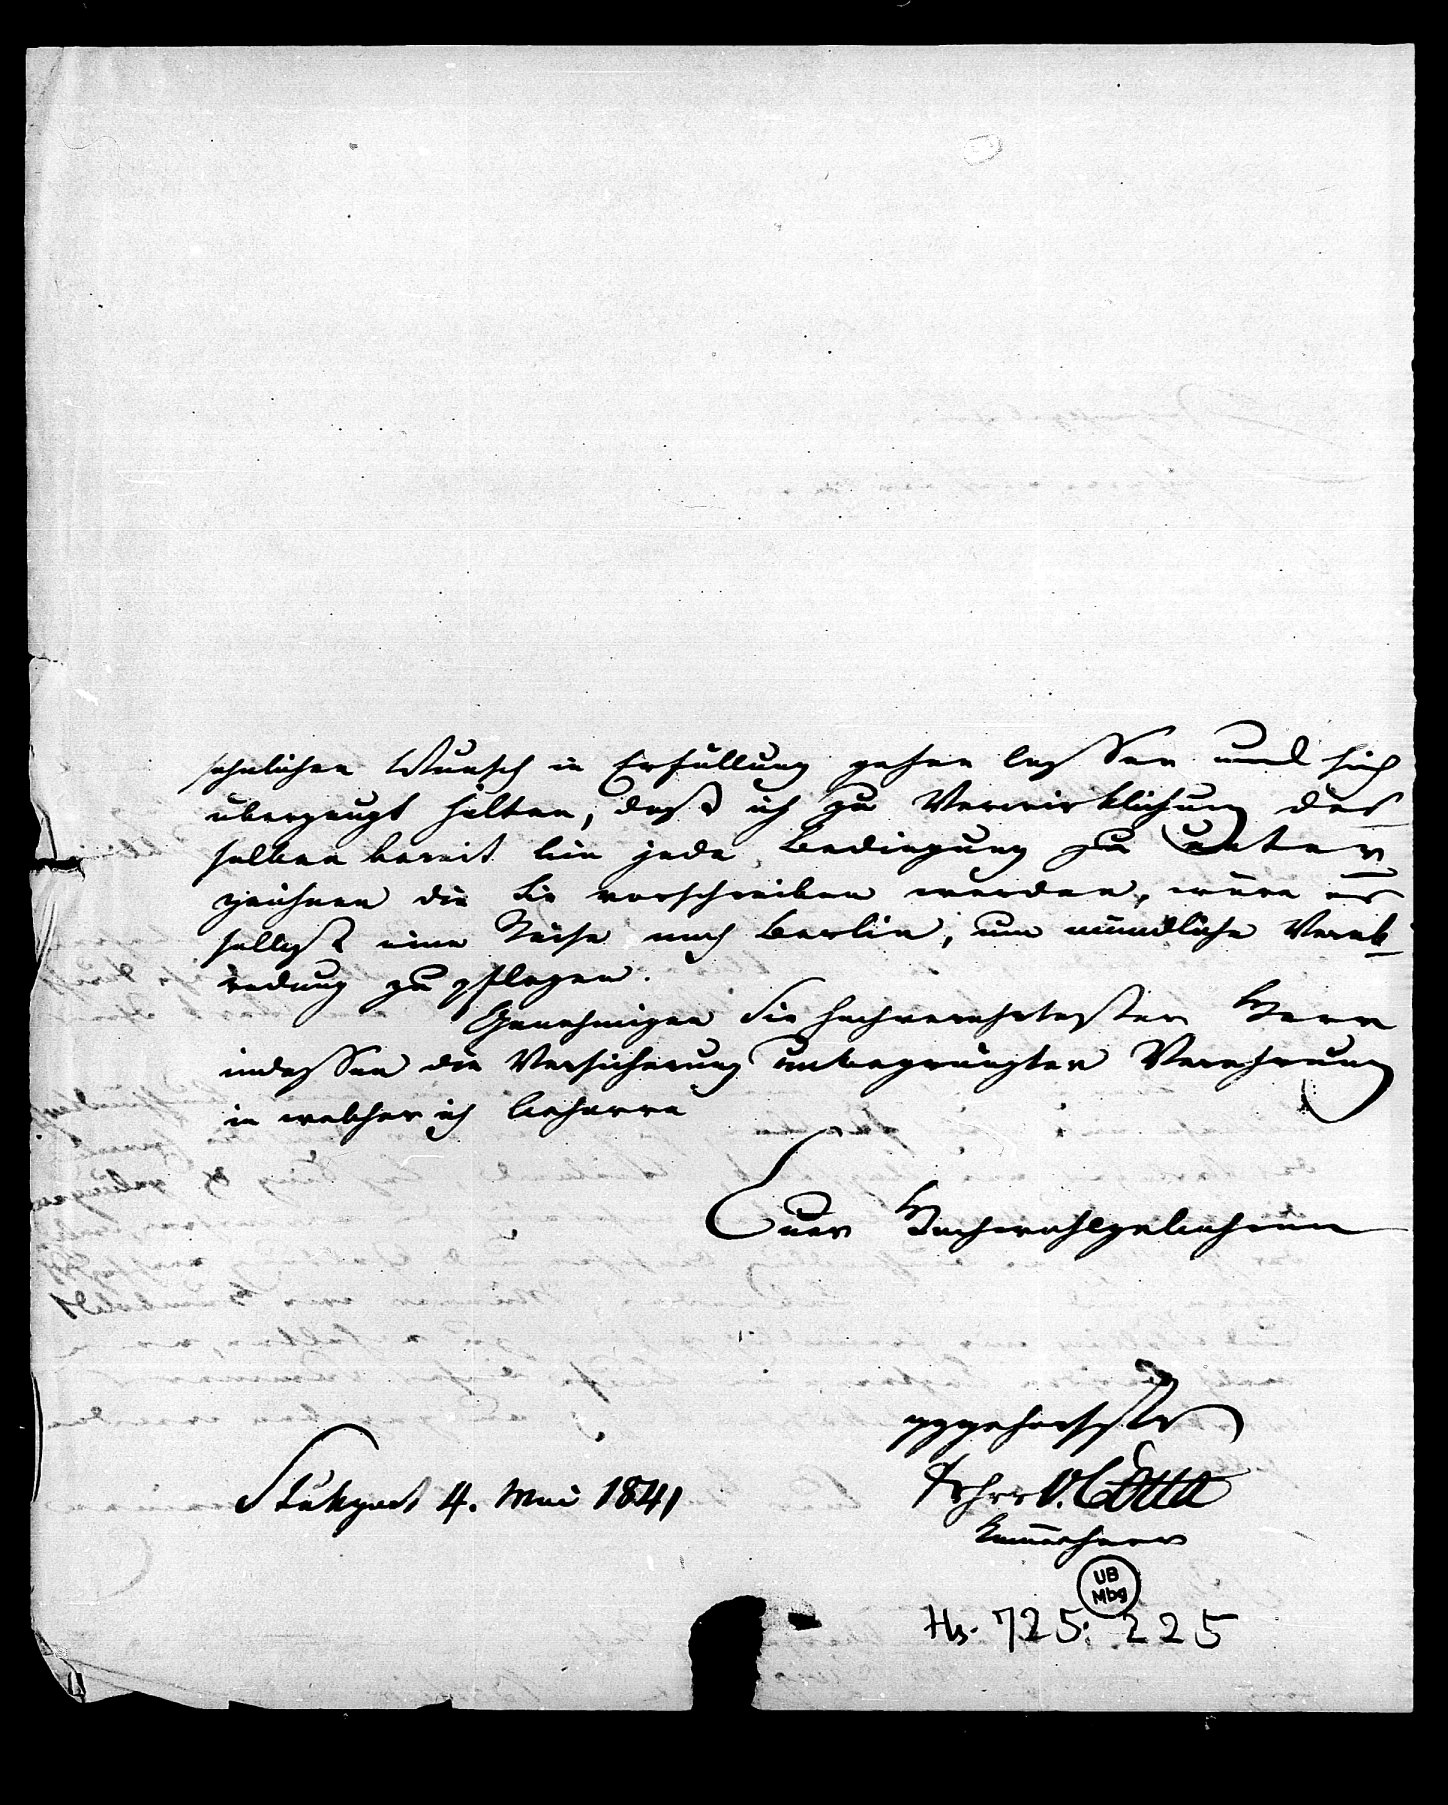 sehnlichen Wunsch in Erfüllung gehen lassen und sich
überzeugt halten, daß ich zu Verwirklichung des
selben bereit bin jede Bedingung zu unter
zeichnen die Sie vorschreiben werden, wäre es
selbst eine Reise nach Berlin, um mündliche Verab
redung zu pflegen.
Genehmigen Sie hochverehrtester Herr
indessen die Versicherung unbegränzter Verehrung
in welcher ich beharre
Euer Hochwohlgebohren
gehorsster
Frhr v. Cotta
Kammerherr
Stuttgart 4. Mai 1841
UB
Mbg
Hs. 725: 225